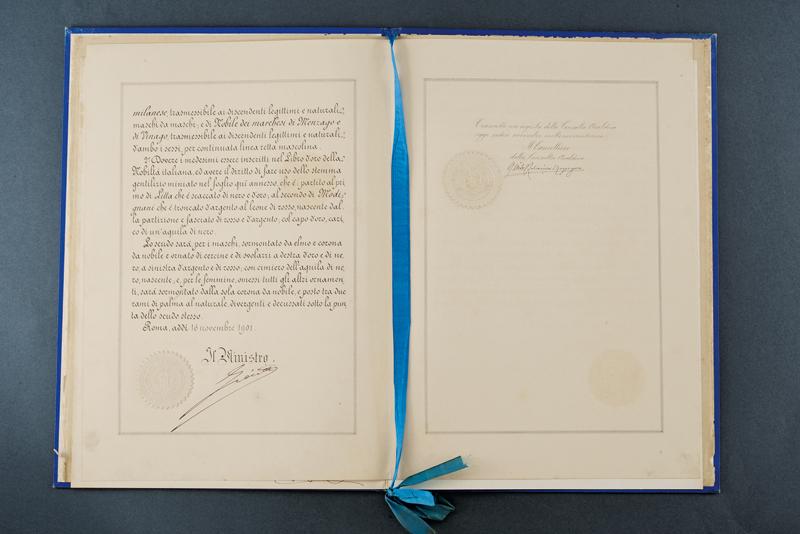 milanese, trasmessibile ai discendenti legittimi e naturali,
maschi da maschi; e di Nobile dei marchesi di Menzago e
di Vinago, trasmessibile ai discendenti legittimi e naturali,
d'ambo i sessi, per continuata linea retta mascolina.
2º Dovere i medesimi essere inscritti nel Libro d'oro della
Nobiltà italiana, ed avere il diritto di fare uso dello stemma
gentilizio miniato nel foglio qui annesso, che è: partito al pri
mo di Litta che è scaccato di nero e d'oro; al secondo di Modi-
gnani che è troncato d'argento al leone di rosso, nascente dal-
la partizione e fasciato di rosso e d'argento; col capo d'oro, cari
co di un'aquila di nero.
Lo scudo sarà, per i maschi, sormontato da elmo e corona
da nobile e ornato di cercine e di svolazzi a destra d'oro e di ne-
ro, a sinistra d'argento e di rosso; con cimiero dell'aquila di ne-
ro, nascente; e, per le femmine, omessi tutti gli altri ornamen-
ti, sarà sormontato dalla sola corona da nobile, e posto tra due
rami di palma al naturale, divergenti e decussati sotto la pun
ta dello scudo stesso.
Roma, addì 16 novembre 1901.
Il Ministro.
della Consulta Araldica
oggi
Il Cancelliere
della Consulta Araldica